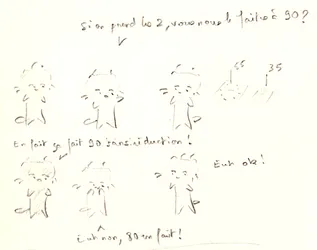 Si on prend les 2, vous nous les faites à 90?
55 35
En fait ça fait 90 sans réduction!
Euh ok!
Euh non, 80 en fait!